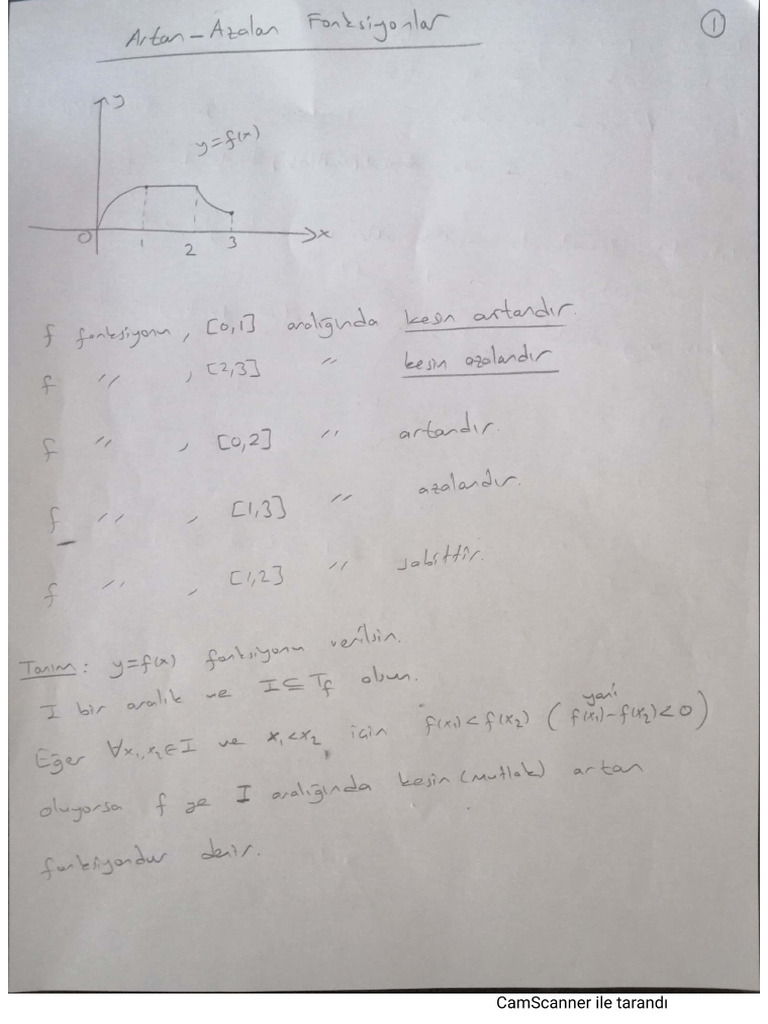 Artan-Azalan Fonksiyonlar
1
y
y=f(x)
0 1 2 3 x
f fonksiyonu, [0,1] aralığında kesin artandır.
f " , [2,3] " kesin azalandır
f " , [0,2] " artandır.
f " , [1,3] " azalandır.
f " , [1,2] " sabittir.
Tanım: y=f(x) fonksiyonu verilsin.
I bir aralık ve I⊆T_f olsun.
yani
Eğer ∀x₁,x₂∈I ve x₁<x₂ için f(x₁)<f(x₂) (f(x₁)-f(x₂)<0)
oluyorsa f ye I aralığında kesin (mutlak) artan
fonksiyondur denir.
CamScanner ile tarandı